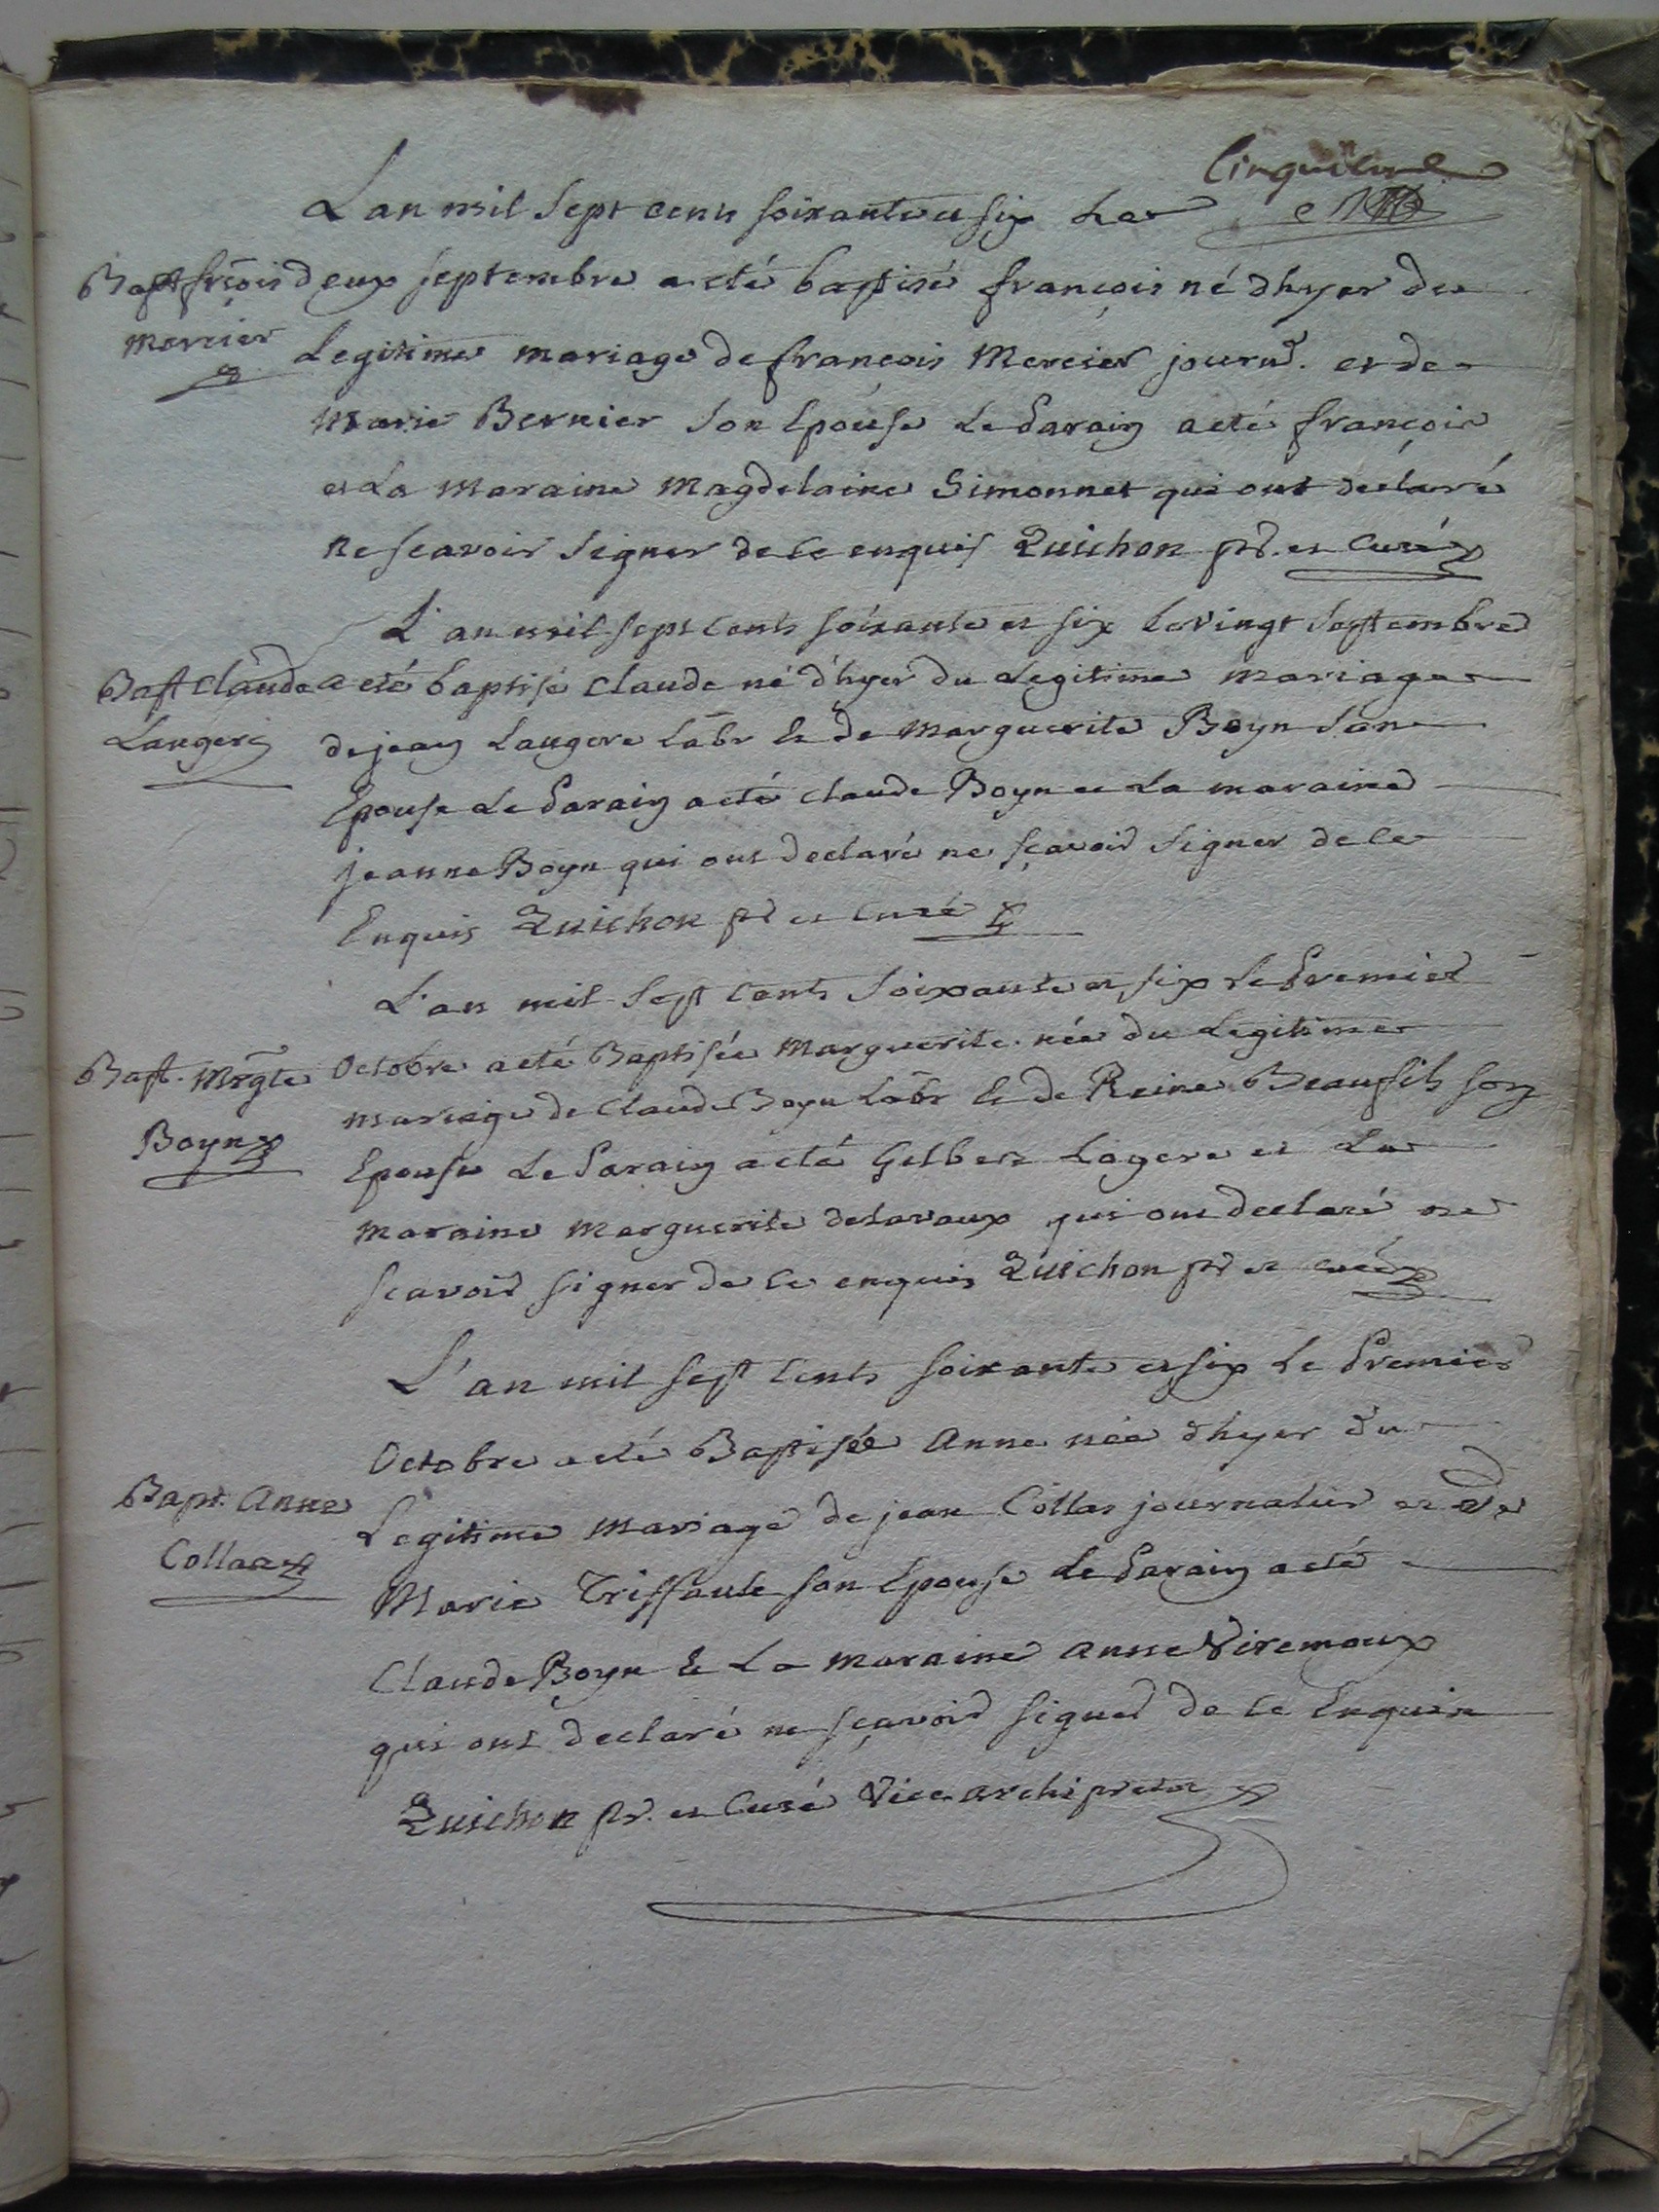 Cinquieme
L an mil Sept cents soixante et six Le
Bapt frçois deux septembre a eté baptisé françois né d hyer du
mercier Legitime mariage de françois Mercier journ.er et de
marie Bernier Son Epouse Le Parain a eté françois
et La maraine Magdelaine Simonnet qui ont declaré
ne scavoir Signer de ce enquis Quichon ptr. et Curé
L'an mil sept cents soixante et six Le Vingt Septembre
Bapt claude a eté baptisé claude né d'hyer du Legitime mariage
Laugere de jean Laugere Labr & de Marguerite Boyn Son
Epouse Le Parain a eté claude Boyn et La maraine
jeanne Boyn qui ont declaré ne sçavoir Signer de ce
Enquis Quichon ptr et Curé
L'an mil Sept Cents Soixante et six Le Premier
Bapt. Mrgte Octobre a eté Baptisée Marguerite née du Legitime
Boyn mariage de claude Boyn Labr & de Reine Beaufils son
Epouse Le Parain a eté Gilbert Lagere et La
Maraine Marguerite delavaux qui ont declaré ne
scavoir signer de ce enquis Quichon ptr et curé
L'an mil sept Cents soixante et six Le Premier
Octobre a eté Baptisée Anne née d hyer du
Bapt. Anne Legitime Mariage de jean Collas journalier et de
Collas Marie Trissaute son Epouse Le Parain a eté
Claude Boyn & La maraine Anne Viremoux
qui ont declaré ne sçavoir signer de ce Enquis
Quichon ptr. et Curé Vice archipretre